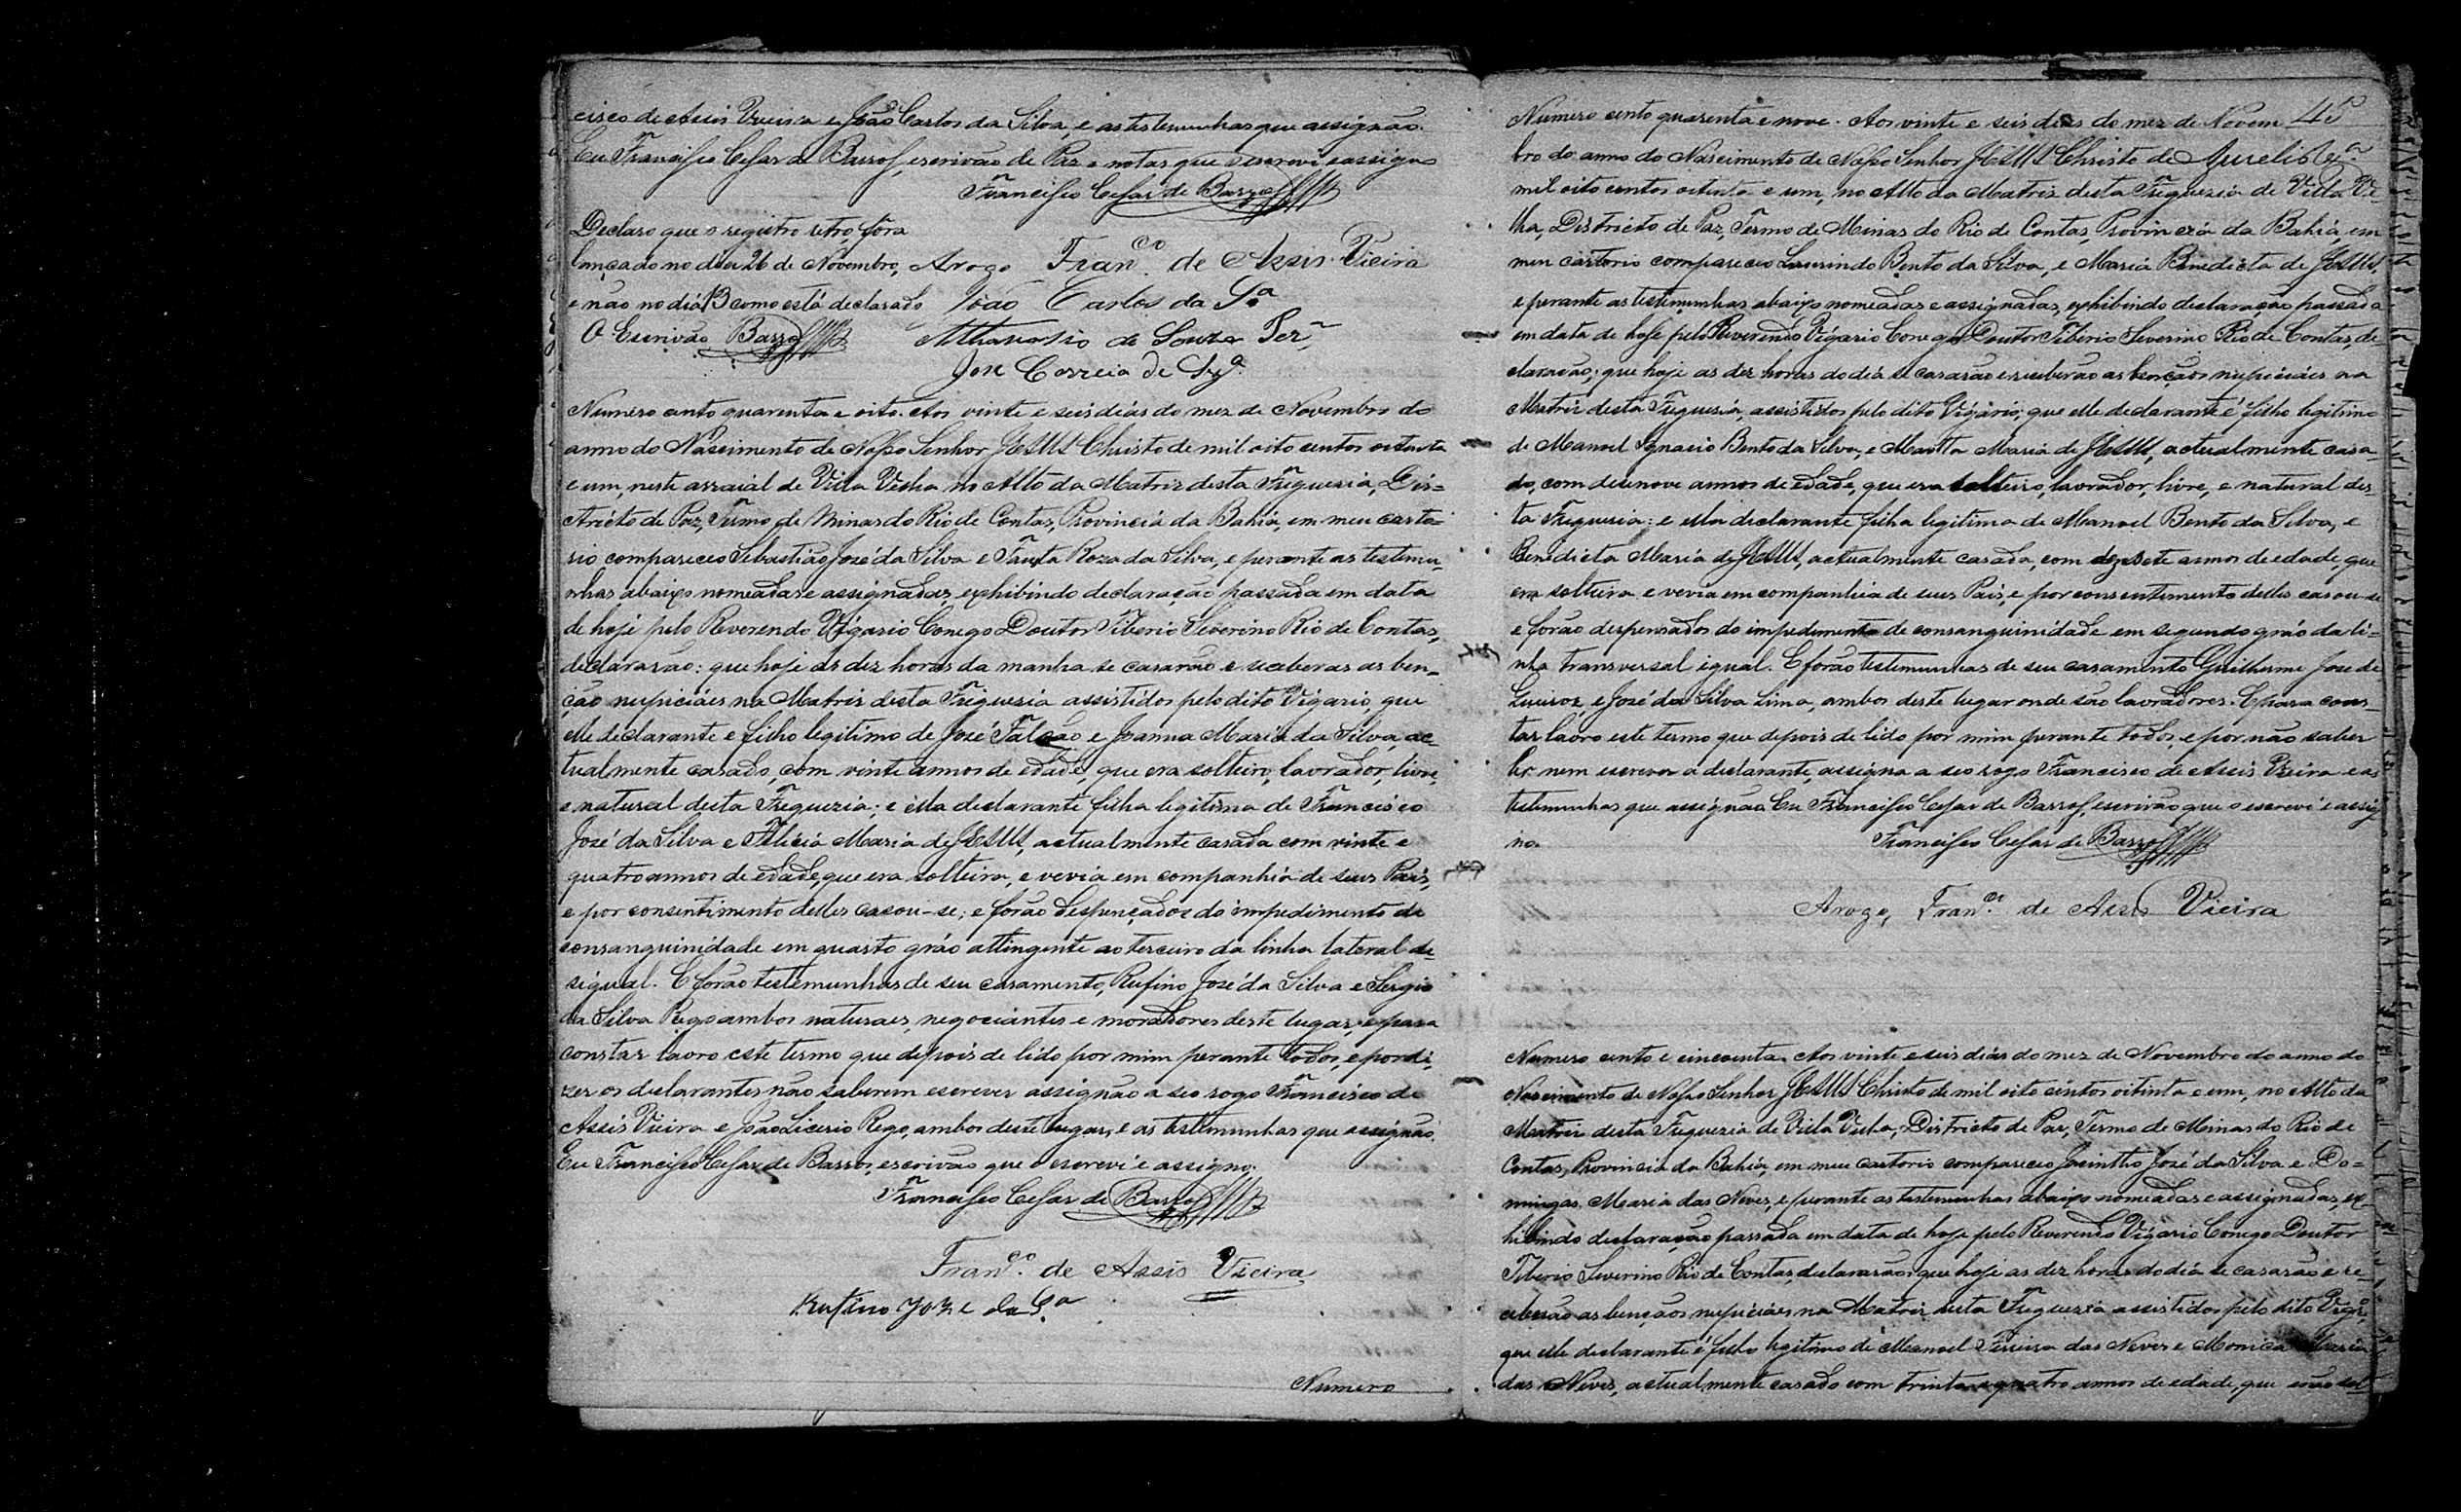 cisco de Assis Vieira e João Carlos da Silva, e as testemunhas que assignão.
Eu Francisco Cesar de Barros, escrivão de Paz e notas que o escrevi e assigno
Francisco Cesar de Barros
Declaro que o registro retro, fora
lançado no dia 26 de Novembro,
e não no dia 13 como está declarado
O Escrivão Barros
Arogo Franco. de Assis Vieira
João Carlos da Sa
Athanasio de Souza Per
José Correia de
Numero cento quarenta e oito. Aos vinte e seis dias do mez de Novembro do
anno do Nascimento de Nosso Senhor JESUS Christo de mil oito centos oitenta
e um, neste arraial de Villa Velha no Alto da Matriz desta Freguesia, Dis=
tricto de Paz, Termo de Minas do Rio de Contas, Provincia da Bahia, em meu carto=
rio compareceo Sebastião José da Silva e Fausta Roza da Silva, e perante as testemu=
nhas abaixo nomeadas e assignadas, exhibindo declaração passada em data
de hoje pelo Reverendo Vigario Conego Doutor Tiberio Severino Rio de Contas,
declararão: que hoje as dez horas da manha se casarão e receberas as ben=
ção nupiciáes na Matriz desta Freguesia assistidos pelo dito Vigario, que
elle declarante e filho legitimo de José Falcão e Joanna Maria da Silva, ac=
tualmente casado, com vinte annos de edade, que era solteiro, lavrador, livre,
e natural desta Freguezia; e ella declarante filha legitima de Francisco
José da Silva e Felicia Maria de JESUS, actualmente casada com vinte e
quatro annos de edade, que era solteira, e vevia em companhia de seus Pais,
e por consentimento delles casou-se; e forão despençados do impedimento de
consanguinidade em quarto gráo attingente ao terceiro da linha lateral de=
sigual. E forão testemunhas de seu casamento, Rufino José da Silva e Sergio
da Silva Rego ambos naturaes, negociantes e moradores deste lugar, e para
constar lavro este termo que depois de lido por mim perante todos, e por di=
zer os declarantes não saberem escrever assignão a seo rogo Francisco de
Assis Vieira e João Licerio Rego, ambos deste lugar, e as testemunhas que assignão.
Eu Francisco Cesar de Barros, escrivão que o escrevi e assigno.
Francisco Cesar de Barros
Franco. de Assis Vieira
Rufino Joze da Sa
Numero
Numero cento quarenta e nove. Aos vinte e seis dias do mez de Novem
bro do anno do Nascimento de Nosso Senhor JESUS Christo de
mil oito centos oitenta e um, no Alto da Matriz desta Freguezia de Villa Ve
lha, Districto de Paz, Termo de Minas do Rio de Contas, Provincia da Bahia, em
meu cartorio compareceo Laurindo Bento da Silva, e Maria Benedicta de JESUS,
e perante as testemunhas abaixo nomeadas e assignadas, exhibindo declaração passada
em data de hoje pelo Reverendo Vigario Conego Doutor Tiberio Severino Rio de Contas, de=
clararão; que hoje as dez horas do dia se casarão e receberão as bençãos nupiciáes na
Matriz desta Freguesia, assistidos pelo dito Vigario; que elle declarante é filho legitimo
de Manoel Ignacio Bento da Silva, e Martta Maria de JESUS, actualmente casa=
do, com desenove annos de edade, que era solteiro, lavrador, livre, e natural des=
ta Freguesia: e ella declarante filha legitima de Manoel Bento da Silva, e
Benedicta Maria de JESUS, actualmente casada, com dezesete annos de edade, que
era solteira e vevia em companhia de seus Pais, e por consentimento delles casou-se
e forão despensados do impedimento de consanguinidade em segundo gráo da li=
nha transversal igual. E forão testemunhas de seu casamento Guilherme José de
Queiroz, e José da Silva Lima, ambos deste lugar onde são lavradores. E para cons=
tar lavro este termo que depois de lido por mim perante todos, e por não saber
ler nem escrever a declarante, assigna a seo rogo Francisco de Assis Vieira e as
testemunhas que assignão. Eu Francisco Cesar de Barros, escrivão que o escrevi e assig
no.
Francisco Cesar de Barros
Arogo, Franco. de Assis Vieira
Numero cento e cincoenta. Aos vinte e seis dias do mez de Novembro do anno do
Nascimento de Nosso Senhor JESUS Christo de mil oito centos oitenta e um, no Alto da
Matriz desta Freguezia de Villa Velha, Districto de Paz, Termo de Minas do Rio de
Contas, Provincia da Bahia, em meu cartorio compareceo Jacintho José da Silva e Do=
mingas Maria das Neves, e perante as testemunhas abaixo nomeadas e assignadas, ex=
hibindo declaração passada em data de hoje pelo Reverendo Vigario Conego Doutor
Tiberio Severino Rio de Contas, declararão: que hoje as dez horas do dia se casarão e re=
ceberão as bençãos nupiciáes, na Matriz desta Freguezia assistidos pelo dito Vigro,
que elle declarante é filho legitimo de Manoel Ferreira das Neves e Monica Maria
das Neves, actualmente casado com trinta e quatro annos de edade, que erão sol